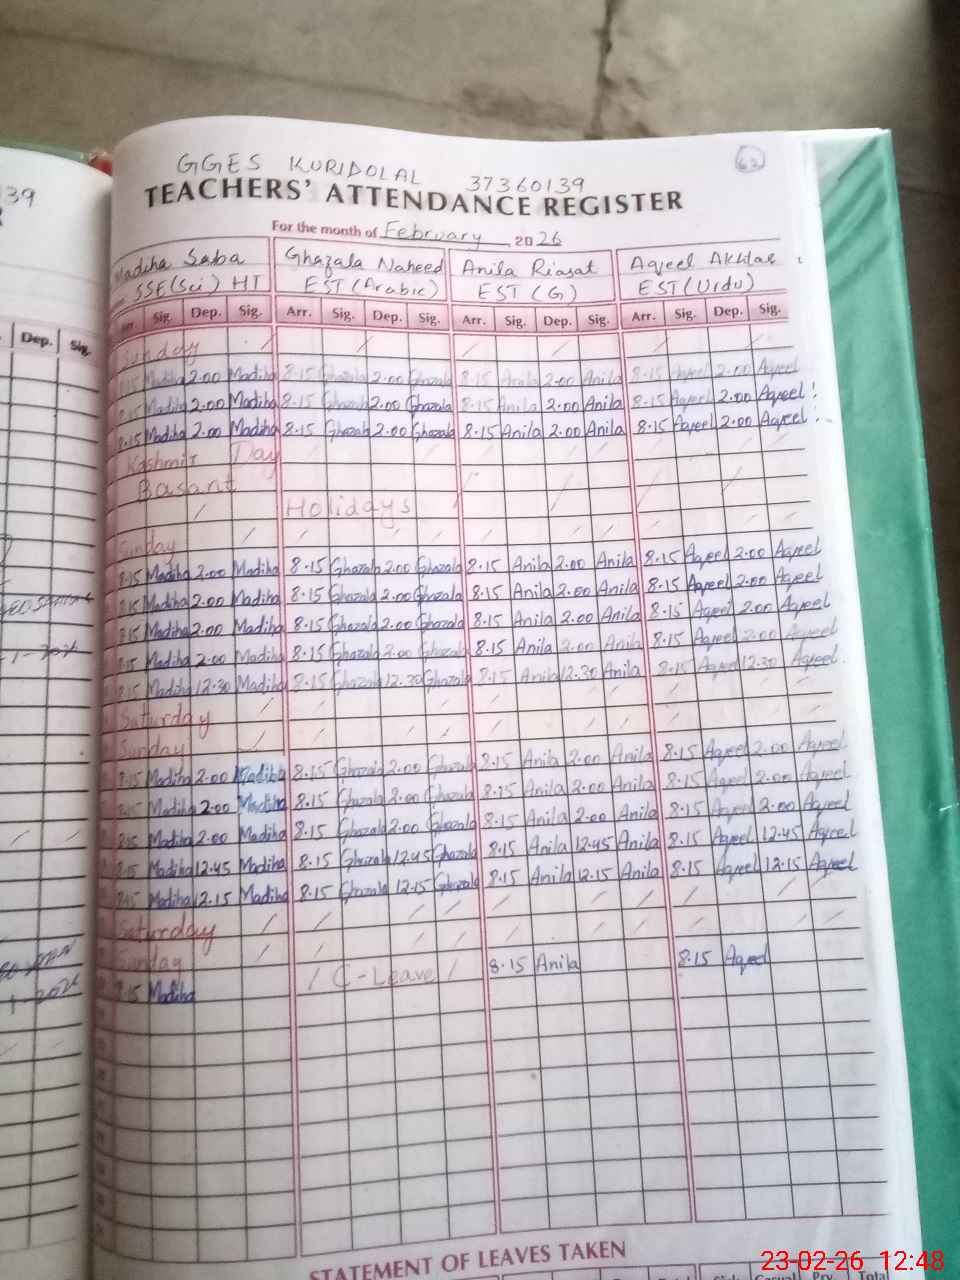 39
GGES KURIDOLAL 37360139
62
TEACHERS' ATTENDANCE REGISTER
For the month of February, 2026
Madiha Saba Ghazala Naheed Anila Riasat Aqeel Akhtar
SSE(Sci) HT EST (Arabic) EST (G) EST (Urdu)
Dep. Sig.
Arr. Sig. Dep. Sig. Arr. Sig. Dep. Sig. Arr. Sig. Dep. Sig. Arr. Sig. Dep. Sig.
Sunday
8.15 Madiha 2.00 Madiha 8.15 Ghazala 2.00 Ghazala 8.15 Anila 2.00 Anila 8.15 Aqeel 2.00 Aqeel
8.15 Madiha 2.00 Madiha 8.15 Ghazala 2.00 Ghazala 8.15 Anila 2.00 Anila 8.15 Aqeel 2.00 Aqeel
8.15 Madiha 2.00 Madiha 8.15 Ghazala 2.00 Ghazala 8.15 Anila 2.00 Anila 8.15 Aqeel 2.00 Aqeel
Kashmir Day
Basant
Holidays
Sunday
8.15 Madiha 2.00 Madiha 8.15 Ghazala 2.00 Ghazala 8.15 Anila 2.00 Anila 8.15 Aqeel 2.00 Aqeel
8.15 Madiha 2.00 Madiha 8.15 Ghazala 2.00 Ghazala 8.15 Anila 2.00 Anila 8.15 Aqeel 2.00 Aqeel
8.15 Madiha 2.00 Madiha 8.15 Ghazala 2.00 Ghazala 8.15 Anila 2.00 Anila 8.15 Aqeel 2.00 Aqeel
8.15 Madiha 2.00 Madiha 8.15 Ghazala 2.00 Ghazala 8.15 Anila 2.00 Anila 8.15 Aqeel 2.00 Aqeel
8.15 Madiha 12.30 Madiha 8.15 Ghazala 12.30 Ghazala 8.15 Anila 12.30 Anila 8.15 Aqeel 12.30 Aqeel
Saturday
Sunday
8.15 Madiha 2.00 Madiha 8.15 Ghazala 2.00 Ghazala 8.15 Anila 2.00 Anila 8.15 Aqeel 2.00 Aqeel
8.15 Madiha 2.00 Madiha 8.15 Ghazala 2.00 Ghazala 8.15 Anila 2.00 Anila 8.15 Aqeel 2.00 Aqeel
8.15 Madiha 2.00 Madiha 8.15 Ghazala 2.00 Ghazala 8.15 Anila 2.00 Anila 8.15 Aqeel 2.00 Aqeel
8.15 Madiha 12.45 Madiha 8.15 Ghazala 12.45 Ghazala 8.15 Anila 12.45 Anila 8.15 Aqeel 12.45 Aqeel
8.15 Madiha 12.15 Madiha 8.15 Ghazala 12.15 Ghazala 8.15 Anila 12.15 Anila 8.15 Aqeel 12.15 Aqeel
Saturday
Sunday
8.15 Madiha C-Leave 8.15 Anila 8.15 Aqeel
STATEMENT OF LEAVES TAKEN
23-02-26 12:48